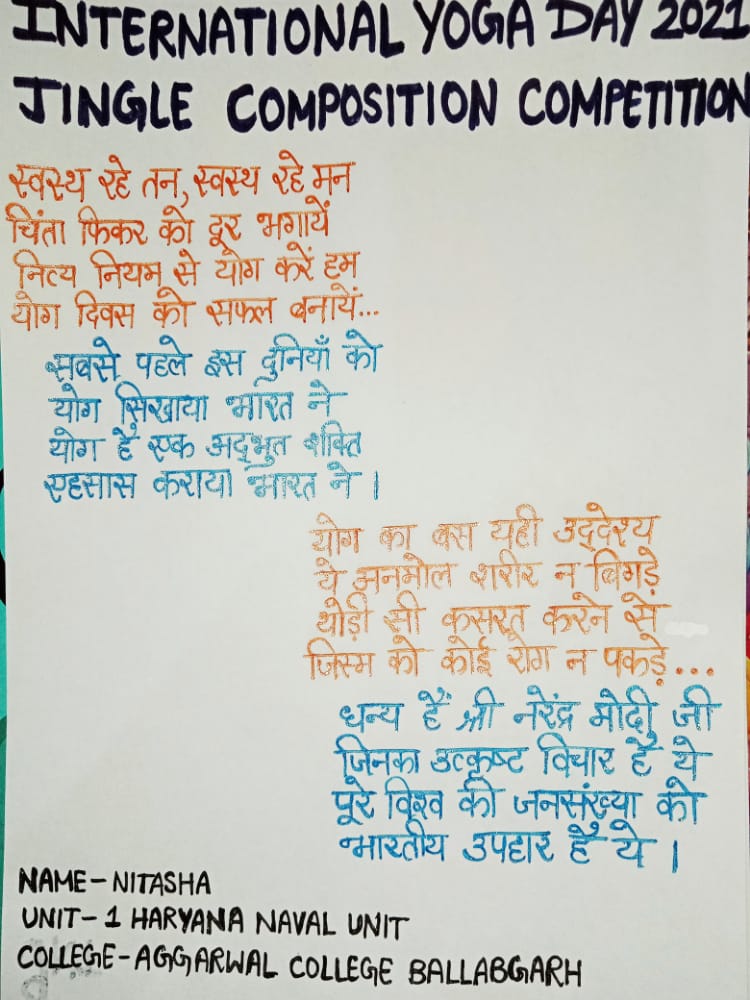 INTERNATIONAL YOGA DAY 2021
JINGLE COMPOSITION COMPETITION
स्वस्थ रहे तन, स्वस्थ रहे मन
चिंता फिकर को दूर भगायें
नित्य नियम से योग करें हम
योग दिवस को सफल बनायें...
सबसे पहले इस दुनियाँ को
योग सिखाया भारत ने
योग है एक अद्भुत शक्ति
एहसास कराया भारत ने।
योग का बस यही उद्देश्य
ये अनमोल शरीर न बिगड़े
थोड़ी सी कसरत करने से
जिस्म को कोई रोग न पकड़े...
धन्य हैं श्री नरेंद्र मोदी जी
जिनका उत्कृष्ट विचार है ये
पूरे विश्व की जनसंख्या को
भारतीय उपहार है ये।
NAME-NITASHA
UNIT-1 HARYANA NAVAL UNIT
COLLEGE-AGGARWAL COLLEGE BALLABGARH